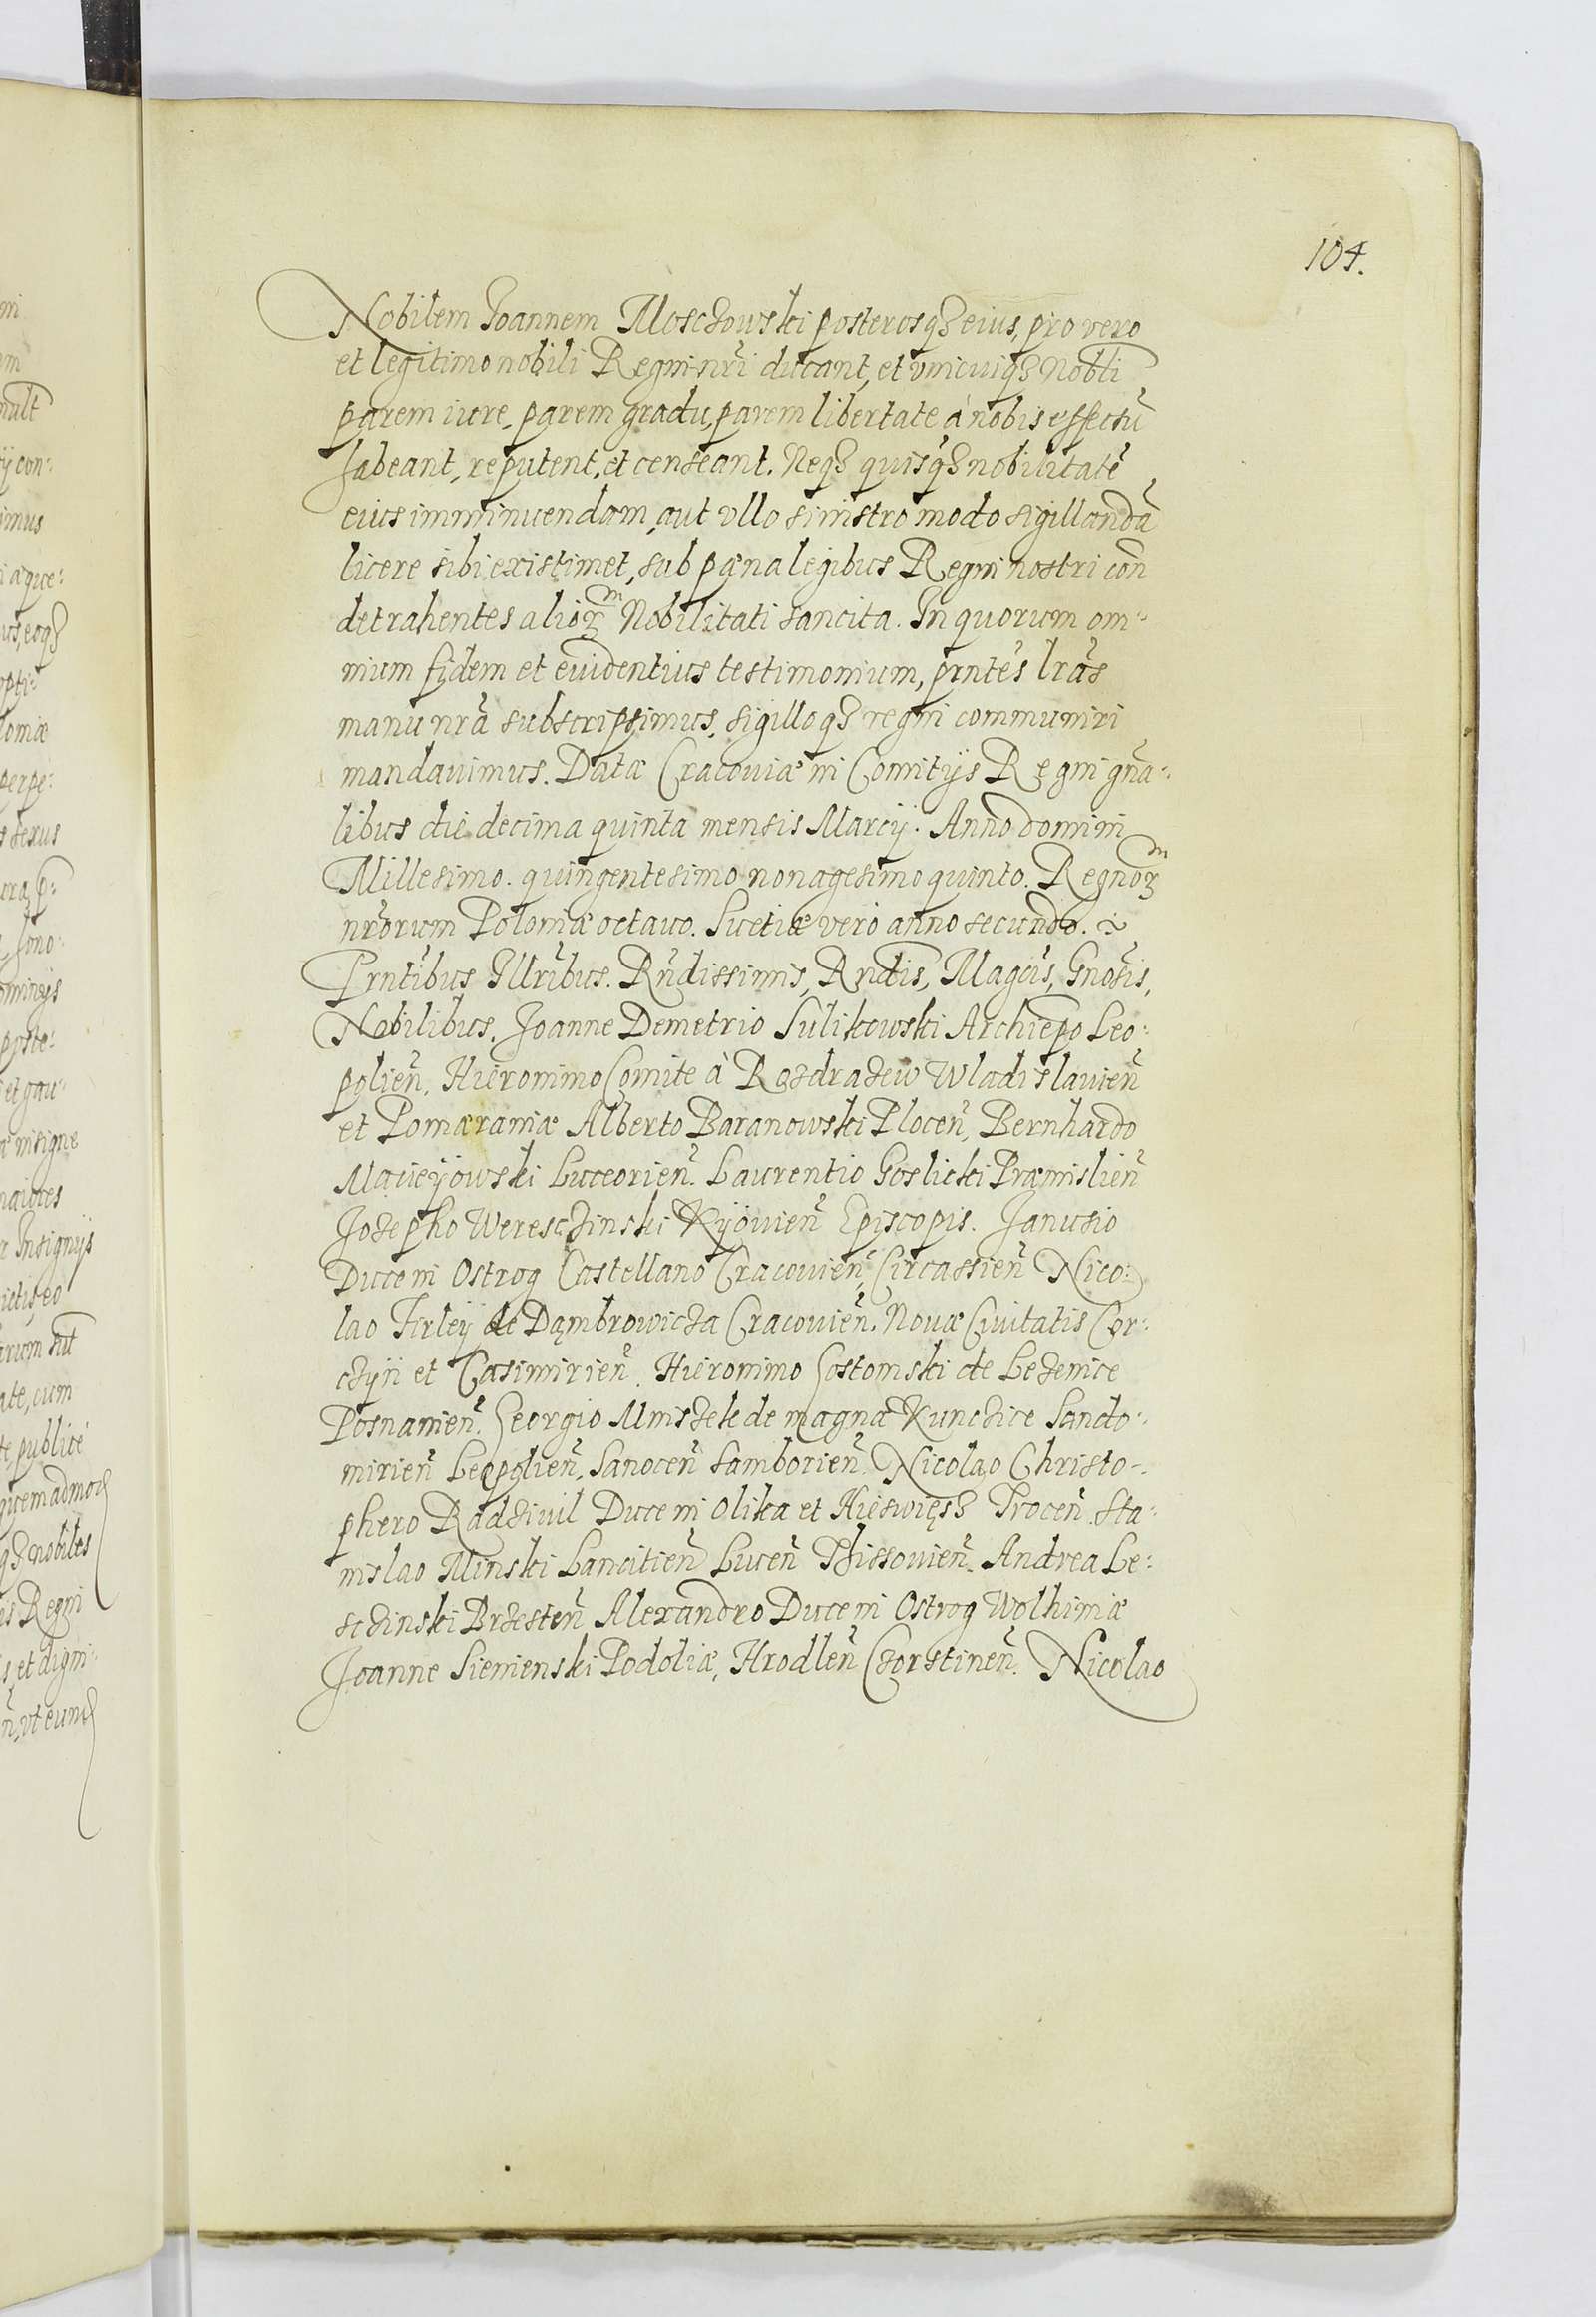 104.
Nobilem Joannem Moschowski posterosq3 eius, pro vero
et legitimo nobili Regni nr̃i ducant, et vnicuiq3 Nobl̃i
parem iure, parem gradu, parem libertate à nobis effectũ
habeant, reputent, et censeant. Neq3 quisq̃3 nobilitatẽ
eius imminuendam, aut vllo sinistro modo sigillandã
licere sibi existimet, sub pæna legibus Regni nostri con
detrahentes alioꝝ Nobilitati sancita. In quorum om-
nium fidem et euidentius testimonium, pr̃ntes lr̃as
manu nr̃a subscripsimus, sigilloq3 regni communiri
mandauimus. Datæ Cracouiæ in Comitijs Regni gña-
libus die decima quinta mensis Marcij. Anno domini
Millesimo. quingentesimo nonagesimo quinto. Regnoꝝ
nr̃orum Poloniæ octauo. Suetiæ vero anno secundo.
Pr̃ntibus Illr̃ibus. Rñdissimis, Rndis, Magcis, Gnosis,
Nobilibus. Joanne Demetrio Sulikowski Archiepo Leo:
polieñ, Hieronimo Comite à Rozdrazew Wladislauieñ
et Pomæraniæ Alberto Baranowski Ploceñ, Bernhardo
Macieÿowski Luceorieñ. Laurentio Goslicki Præmislieñ
Josepho Weresczinski Kyouieñ Episcopis. Janusio
Duce in Ostrog Castellano Cracouieñ, Circassieñ Nico:
lao Firleÿ de Dąmbrowicza Cracouieñ. Nouæ Ciuitatis Cor:
czÿn et Casimirieñ. Hieronimo Gostomski de Lezenice
Posnanieñ. Georgio Mniszek de magna Kunczice Sando:
mirieñ Leopolieñ, Sanoceñ Samborieñ. Nicolao Christo-
phero Radziuil Duce in Olika et Nieswięs3 Troceñ Sta:
nislao Minski Lancitieñ Luceñ Thissouieñ. Andrea Le:
sczinski Brzesteñ Alexandro Duce in Ostrog Wolhiniæ
Joanne Sienienski Podoliæ, Hrodleñ Czorstineñ. Nicolao